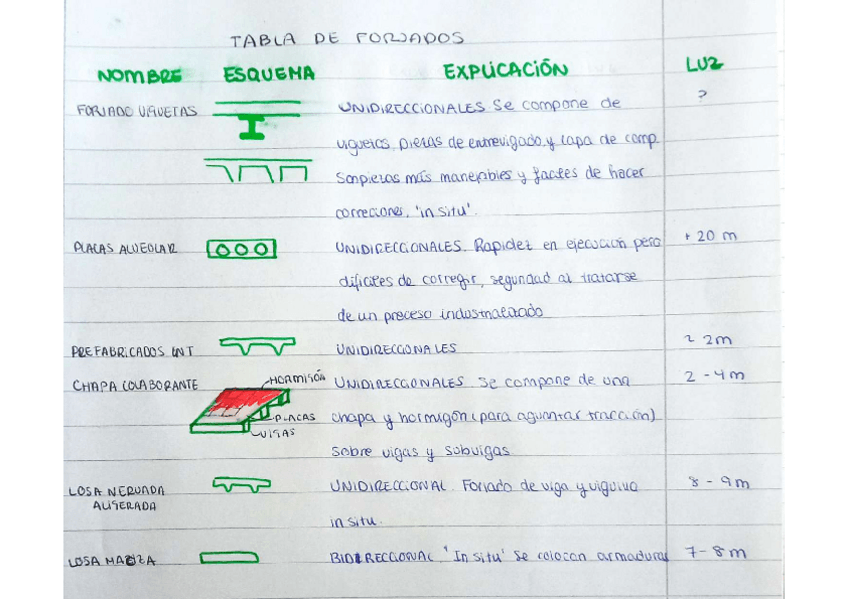 TABLA DE FORJADOS
NOMBRE ESQUEMA EXPLICACIÓN LUZ
FORJADO VIGUETAS UNIDIRECCIONALES Se compone de ?
viguetas, piezas de entrevigado, y capa de comp.
Son piezas más manejables y faciles de hacer
correciones, 'in situ'.
PLACAS ALVEOLAR UNIDIRECCIONALES. Rapidez en ejecución pero + 20 m
dificiles de corregir, seguridad al tratarse
de un proceso industrializado
PREFABRICADOS INT UNIDIRECCIONALES 2 2m
CHAPA COLABORANTE HORMIGÓN UNIDIRECCIONALES. Se compone de una 2 - 4 m
PLACAS chapa y hormigón (para aguantar tracción)
VIGAS sobre vigas y subvigas
LOSA NERVADA UNIDIRECCIONAL. Forjado de viga y vigueta 8 - 9 m
ALIGERADA in situ.
LOSA MACIZA BIDIRECCIONAL. 'In situ' Se colocan armaduras 7 - 8 m